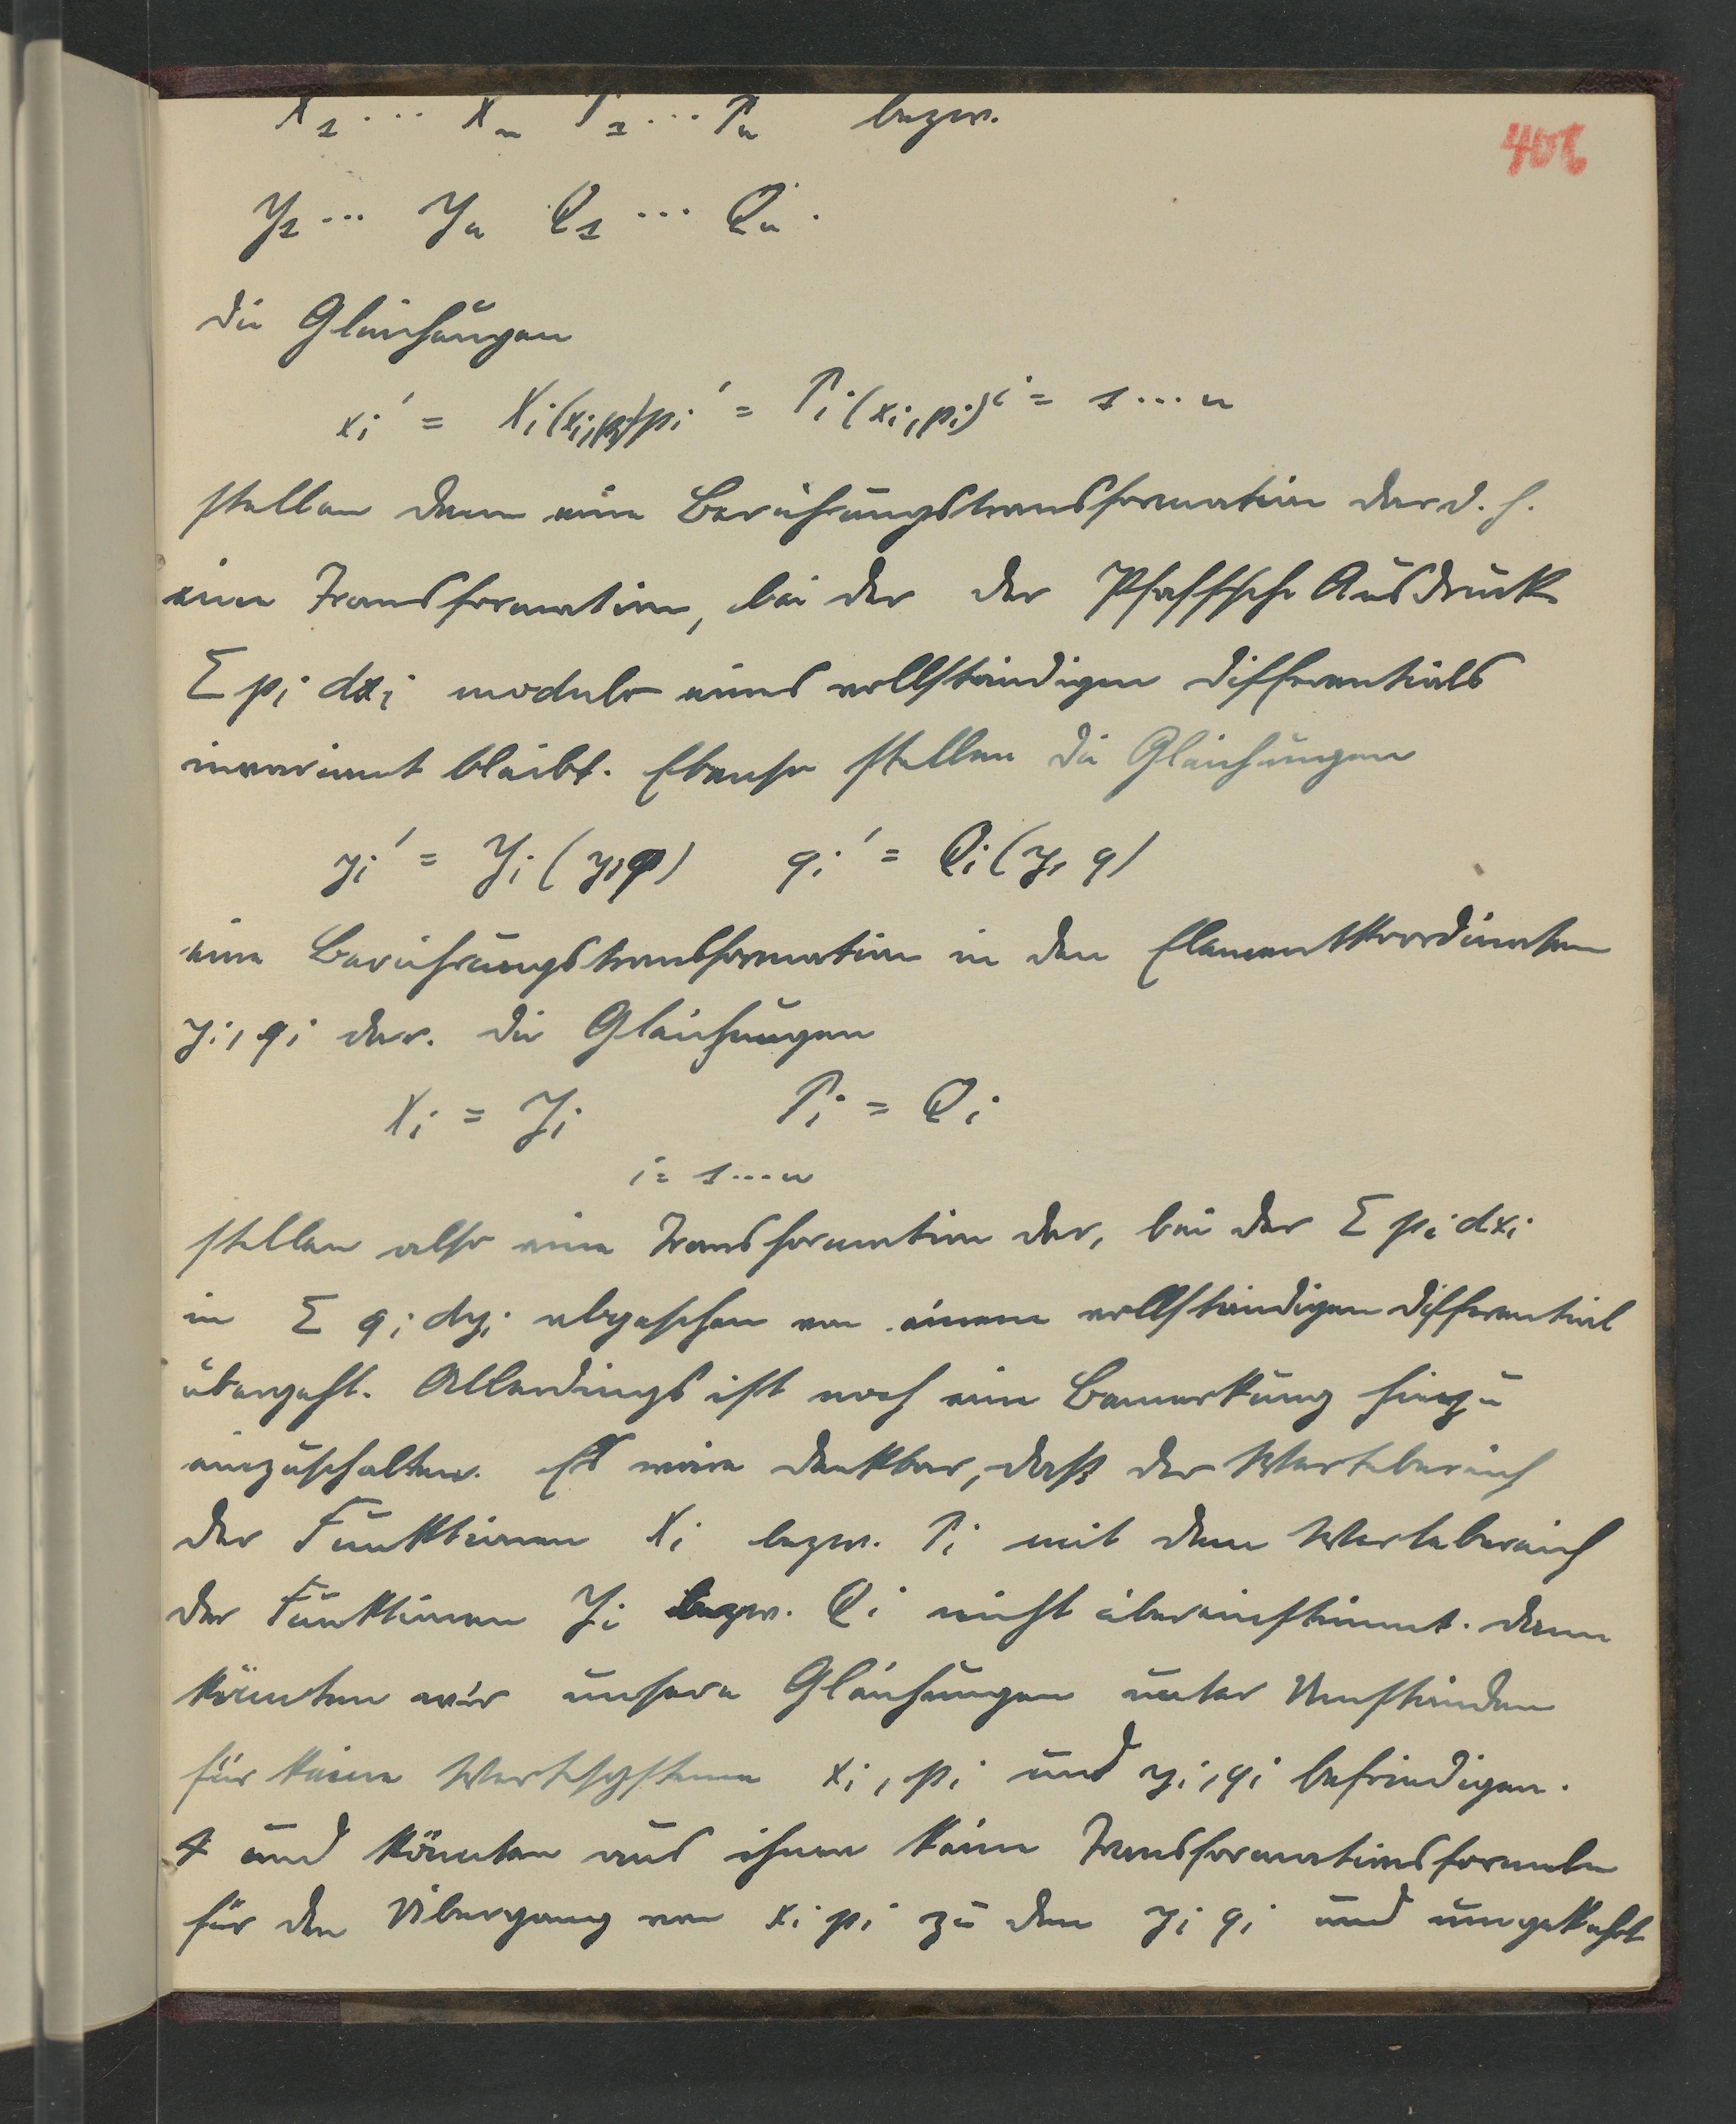 X₁ ... Xₙ P₁ ... Pₙ bezw.
408
Y₁ ... Yₙ Q₁ ... Qₙ.
die Gleichungen
xᵢ' = Xᵢ(xᵢ, pᵢ) pᵢ' = Pᵢ(xᵢ, pᵢ) i = 1 ... n
stellen dann eine Berührungstransformation dar d. h.
eine Transformation, bei der der Pfaffsche Ausdruck
Σ pᵢ dxᵢ modulo eines vollständigen Differentials
invariant bleibt. Ebenso stellen die Gleichungen
yᵢ' = Yᵢ (y, q) qᵢ' = Qᵢ (y, q)
eine Berührungstransformation in den Elementkoordinaten
yᵢ, qᵢ dar. Die Gleichungen
Xᵢ = Yᵢ Pᵢ = Qᵢ
i = 1 .... n
stellen also eine Transformation dar, bei der Σ pᵢ dxᵢ
in Σ qᵢ dyᵢ abgesehen von einem vollständigen Differential
übergeht. Allerdings ist noch eine Bemerkung hinzu
einzuschalten. Es wäre denkbar, daß der Wertebereich
der Funktionen Xᵢ bezw. Pᵢ mit dem Wertebereich
der Funktionen Yᵢ bezw. Qᵢ nicht übereinstimmt. Dann
könnten wir unsere Gleichungen unter Umständen
für keine Wertesysteme xᵢ, pᵢ und yᵢ, qᵢ befriedigen.
und könnten aus ihnen keine Transformationsformeln
für den Übergang von xᵢ pᵢ zu den yᵢ qᵢ und umgekehrt